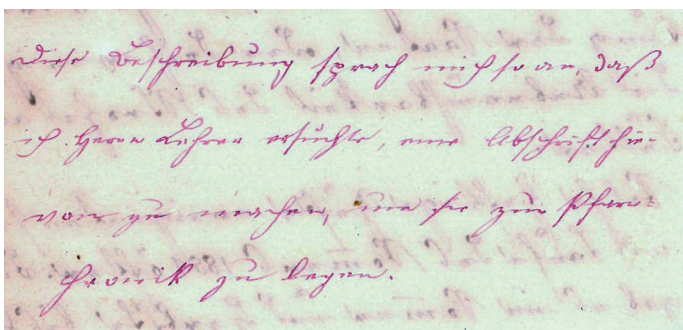 Diese Beschreibung sprach mich so an, daß
ich Herrn Lehrer ersuchte, eine Abschrift hie-
von zu machen, um sie zur Pfarr-
chronik zu legen.